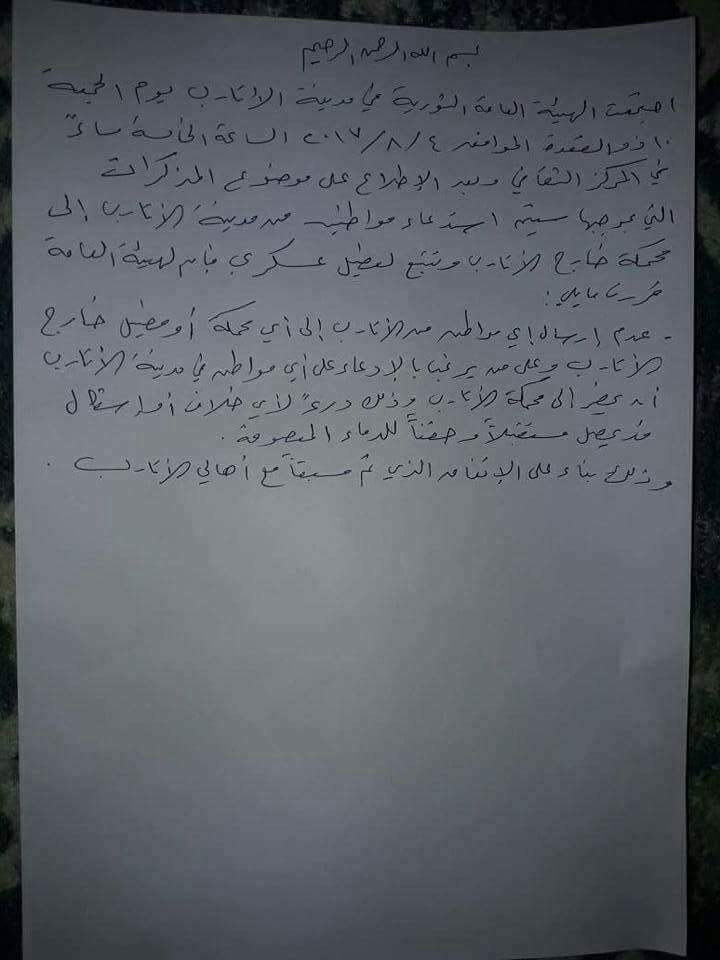 بسم الله الرحمن الرحيم
اجتمعت الهيئة العامة الثورية في مدينة الأتارب يوم الجمعة
١٠ ذو القعدة الموافق ٤ / ٨ / ٢٠١٧ الساعة الخامسة مساءً
في المركز الثقافي وبعد الإطلاع على موضوع المذكرات
التي بموجبها سيتم استدعاء مواطنين من مدينة الأتارب إلى
محكمة خارج الأتارب وتتبع لفصيل عسكري فإن الهيئة العامة
قررت مايلي :
- عدم إرسال إي مواطن من الأتارب إلى أي محكمة أو فصيل خارج
الأتارب وعلى من يرغب بالإدعاء على أي مواطن في مدينة الأتارب
أن يحضر إلى محكمة الأتارب وذلك درءً لأي خلاف أو إشكال
قد يحصل مستقبلاً وحقناً للدماء المعصومة .
وذلك بناء على الإتفاق الذي تم مسبقاً مع أهالي الأتارب .